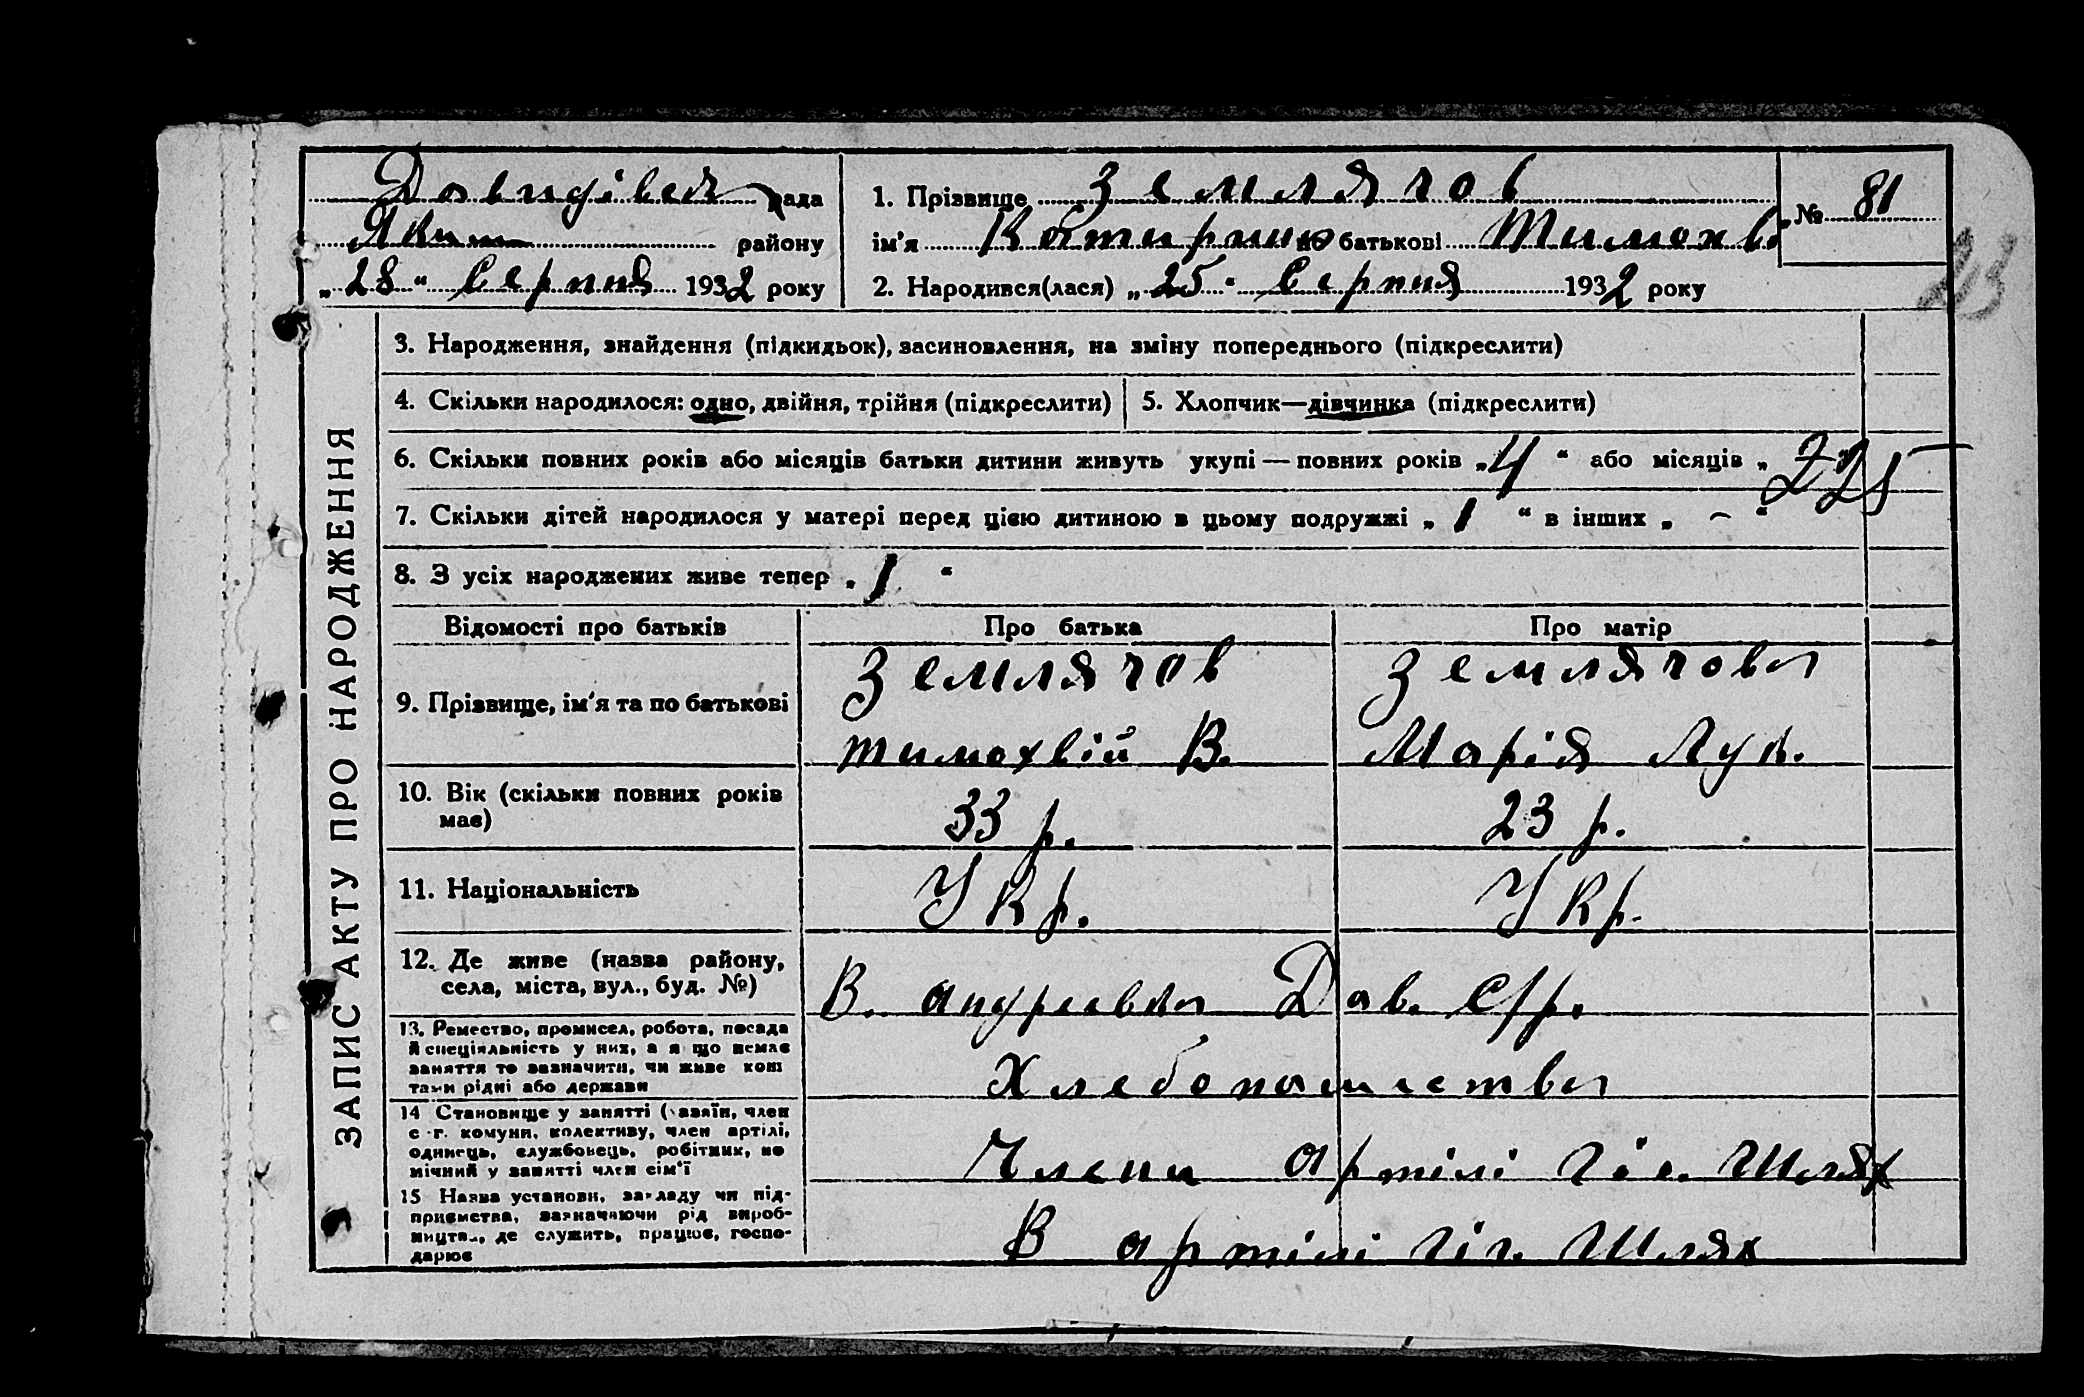 Давидівся рада
Яким районy
„28“ Серпня 1932 року
1. Прізвище Землячов
ім'я Катирина по батькові Тимохв.
2. Народився(лася) „25“ Серпня 1932 року
№ 81
3. Народження, знайдення (підкидьок), засиновлення, на зміну попереднього (підкреслити)
4. Скільки народилося: одно, двійня, трійня (підкреслити)
5. Хлопчик—дівчинка (підкреслити)
6. Скільки повних років або місяців батьки дитини живуть укупі — повних років „4“ або місяців „
7. Скільки дітей народилося у матері перед цією дитиною в цьому подружжі „1“ в інших „ – “
8. З усіх народжених живе тепер „1“
ЗАПИС АКТУ ПРО НАРОДЖЕННЯ
Відомості про батьків Про батька Про матір
9. Прізвище, ім'я та по батькові
Землячов
Тимохвій В.
Землячова
Марія Лук.
10. Вік (скільки повних років
має)
33 р. 23 р.
11. Національність Укр. Укр.
12. Де живе (назва району,
села, міста, вул., буд. №)
В. андреєвка Дав. С/р.
13. Ремество, промисел, робота, посада
й спеціяльність у них, а якщо немає
заняття то зазначити, чи живе кош
тами рідні або держави
Хлебопашества
14 Становище у занятті (хазяїн, член
с.-г. комуни, колективу, член артілі,
одинець, службовець, робітник, по
мічний у занятті член сім'ї
Члени артілі Шлях
15 Назва установи, закладу чи під-
приємства, зазначаючи рід вироб-
ництва, де служить, працює, госпо-
дарює
В артілі Шлях